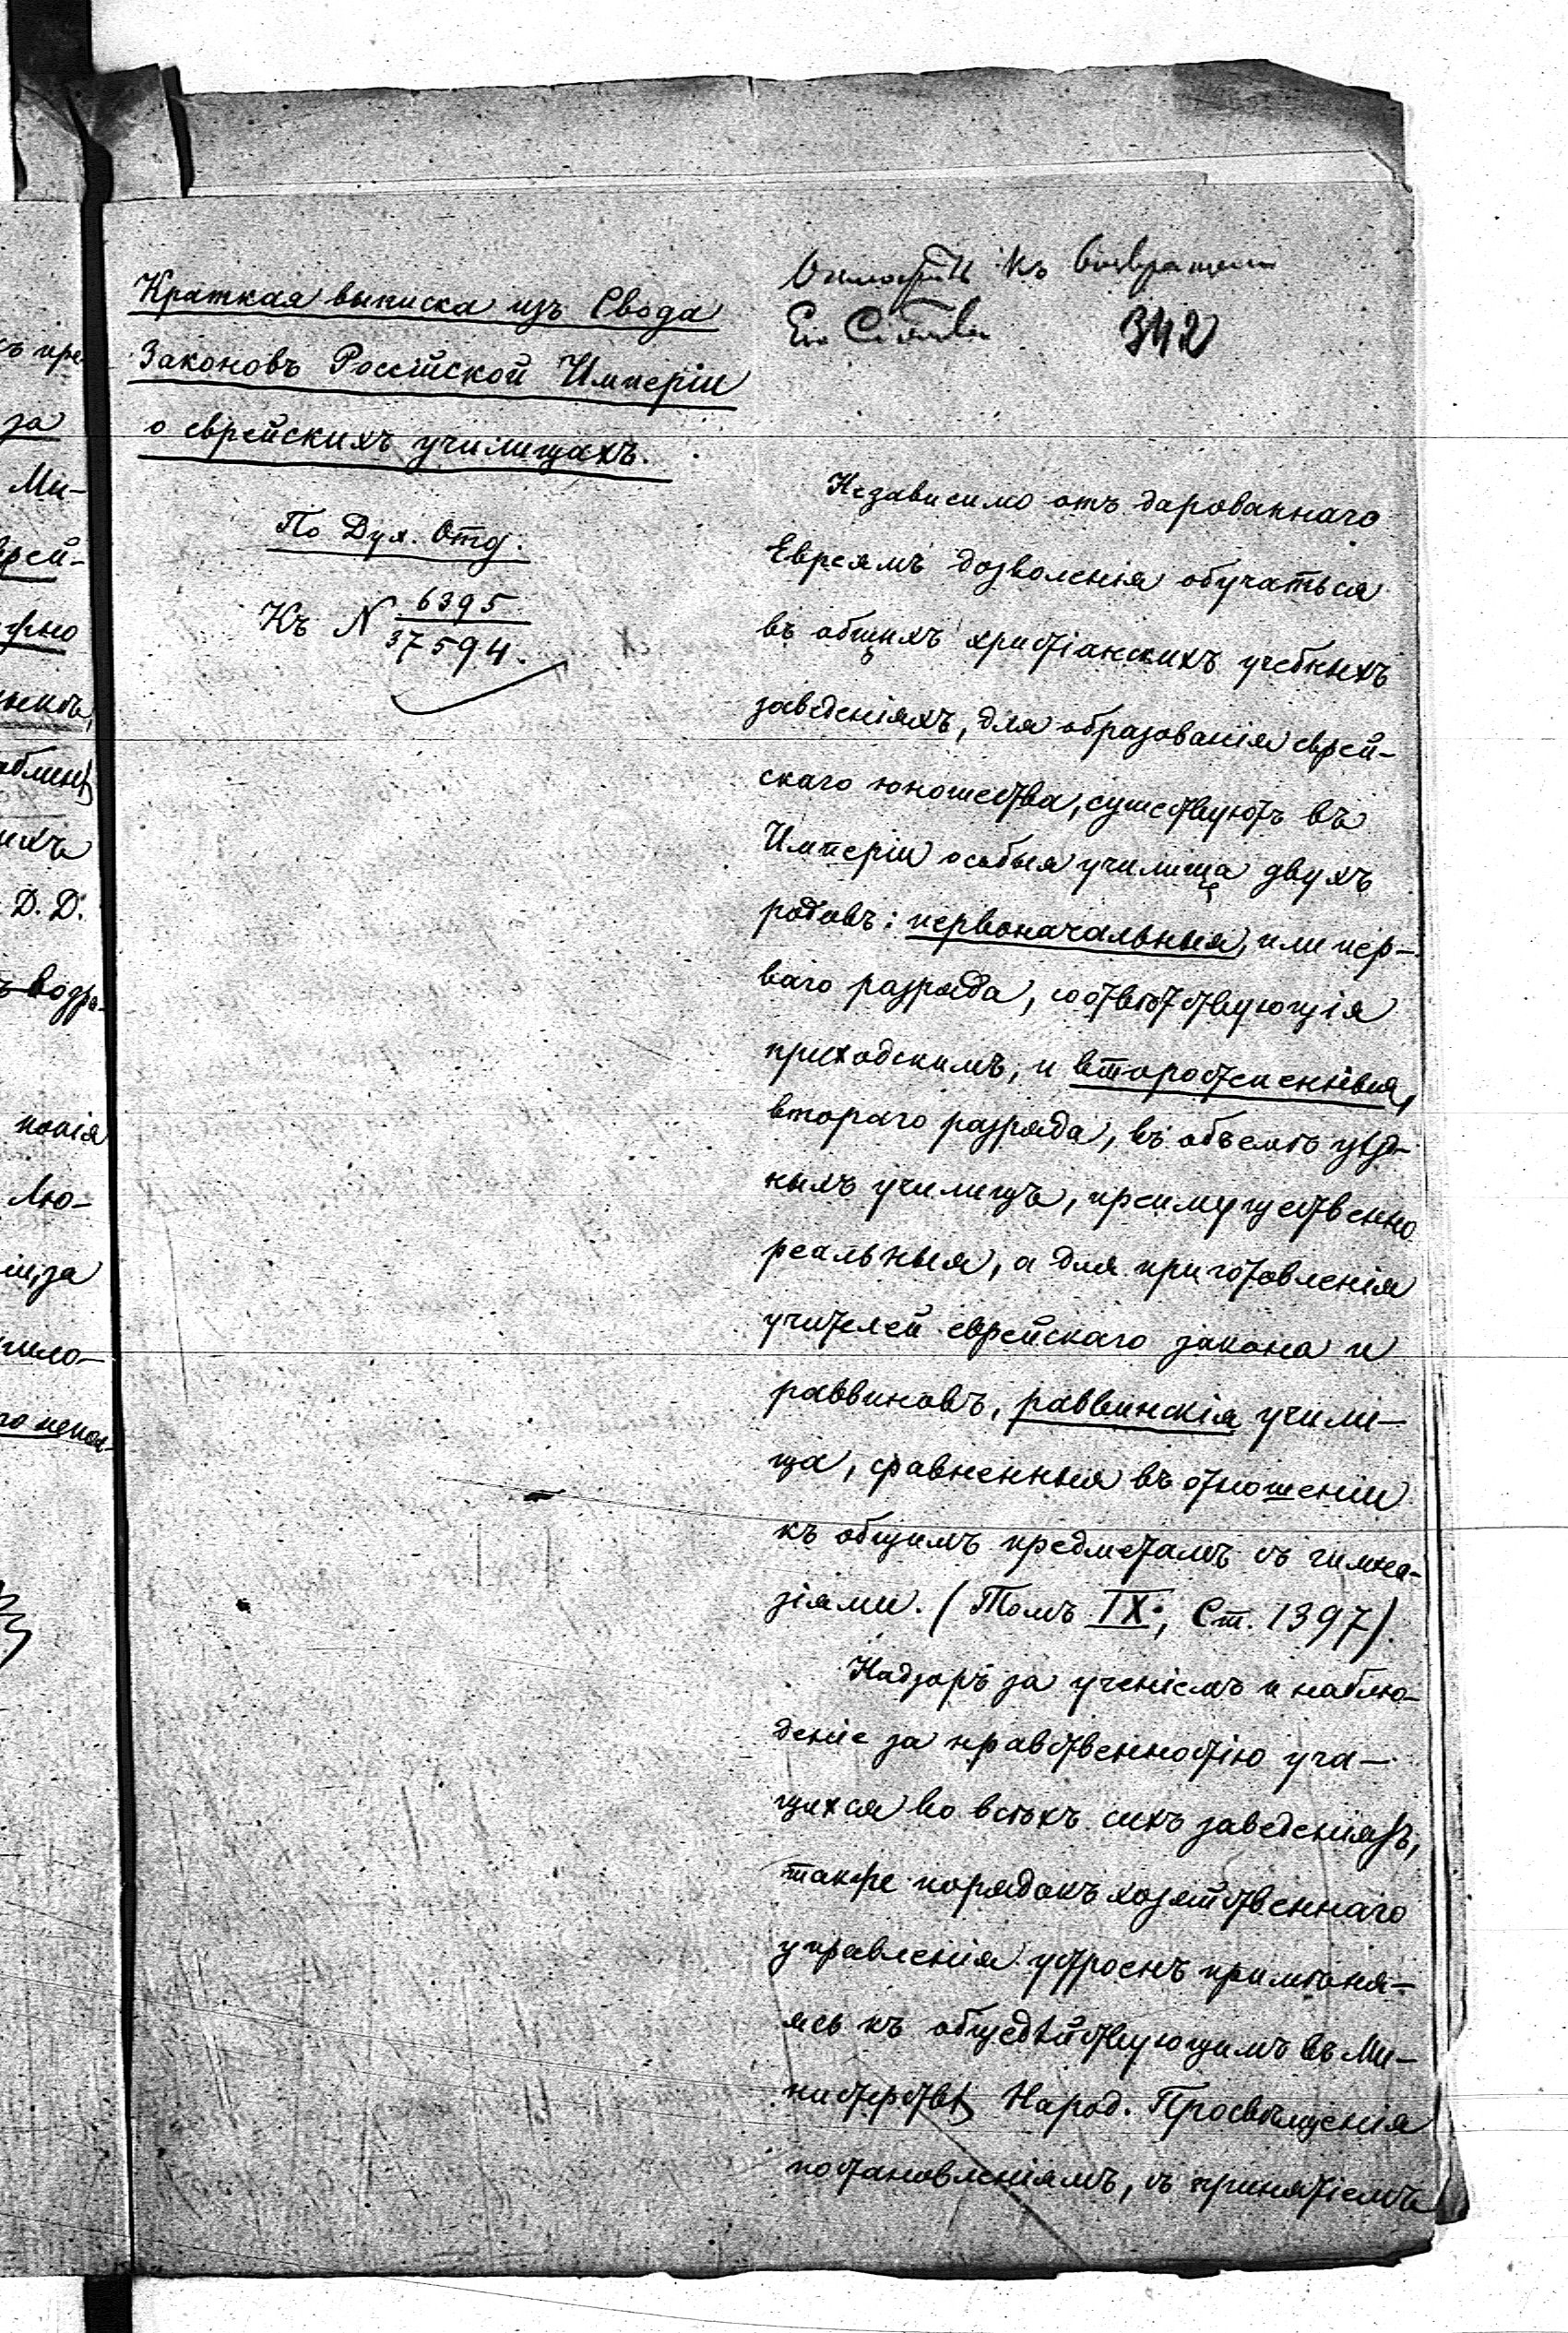 Краткая выписка изъ Свода
Законовъ Россійской Имперіи
о еврейскихъ училищахъ.
По Дух. Отд.
Къ N 6395
37594.
къ
Его
342
Независимо отъ дарованнаго
Евреямъ дозволенія обучаться
въ общихъ христіанскихъ учебныхъ
заведеніяхъ, для образованія еврей-
скаго юношества, существуютъ въ
Имперіи особыя училища двухъ
родовъ: первоначальныя, или пер-
ваго разряда, соотвѣтствующія
приходскимъ, и второстепенныя,
втораго разряда, въ объемѣ уѣзд-
ныхъ училищъ, преимущественно
реальныя, а для приготовленія
учителей еврейскаго закона и
раввиновъ, раввинскія учили-
ща, сравненныя въ отношеніи
къ общимъ предметамъ съ гимна-
зіями. (Томъ IX, Ст. 1397).
Надзоръ за ученіемъ и наблю-
деніе за нравственностію уча-
щихся во всѣхъ сихъ заведеніяхъ,
также порядокъ хозяйственнаго
управленія устроенъ примѣня-
ясь къ общедѣйствующимъ въ Ми-
нистерствѣ Народ. Просвѣщенія
постановленіямъ, съ принятіемъ
за
Ми-
рей-
ихъ
Д. Д.
копія
Лю-